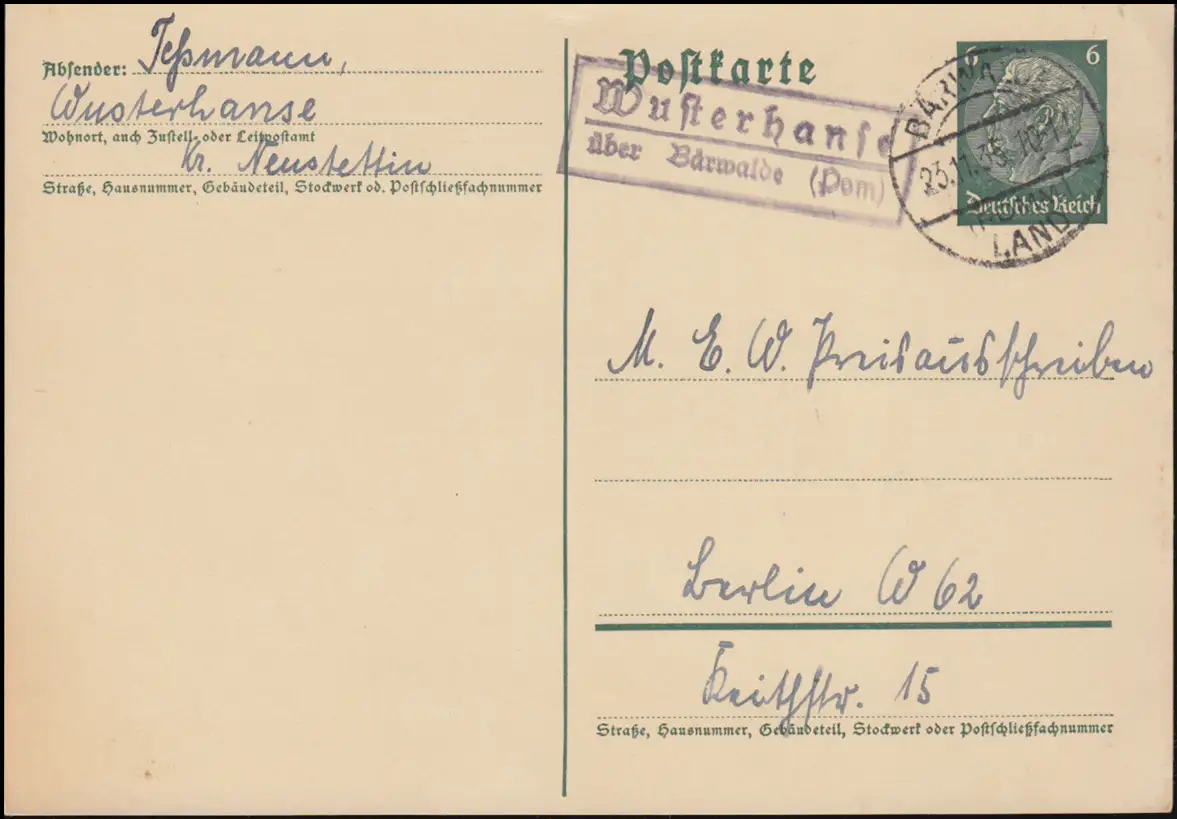 Absender: Teßmann,
Wusterhanse
Wohnort, auch Zustell- oder Leitpostamt
Kr. Neustettin
Straße, Hausnummer, Gebäudeteil, Stockwerk od. Postschließfachnummer
Postkarte
Wusterhanse
über Bärwalde (Pom)
6 6
Deutsches Reich
BÄRWALDE
23.11.
LAND
M. E. W. Preisausschreiben
Berlin W 62
Keithstr. 15
Straße, Hausnummer, Gebäudeteil, Stockwerk oder Postschließfachnummer